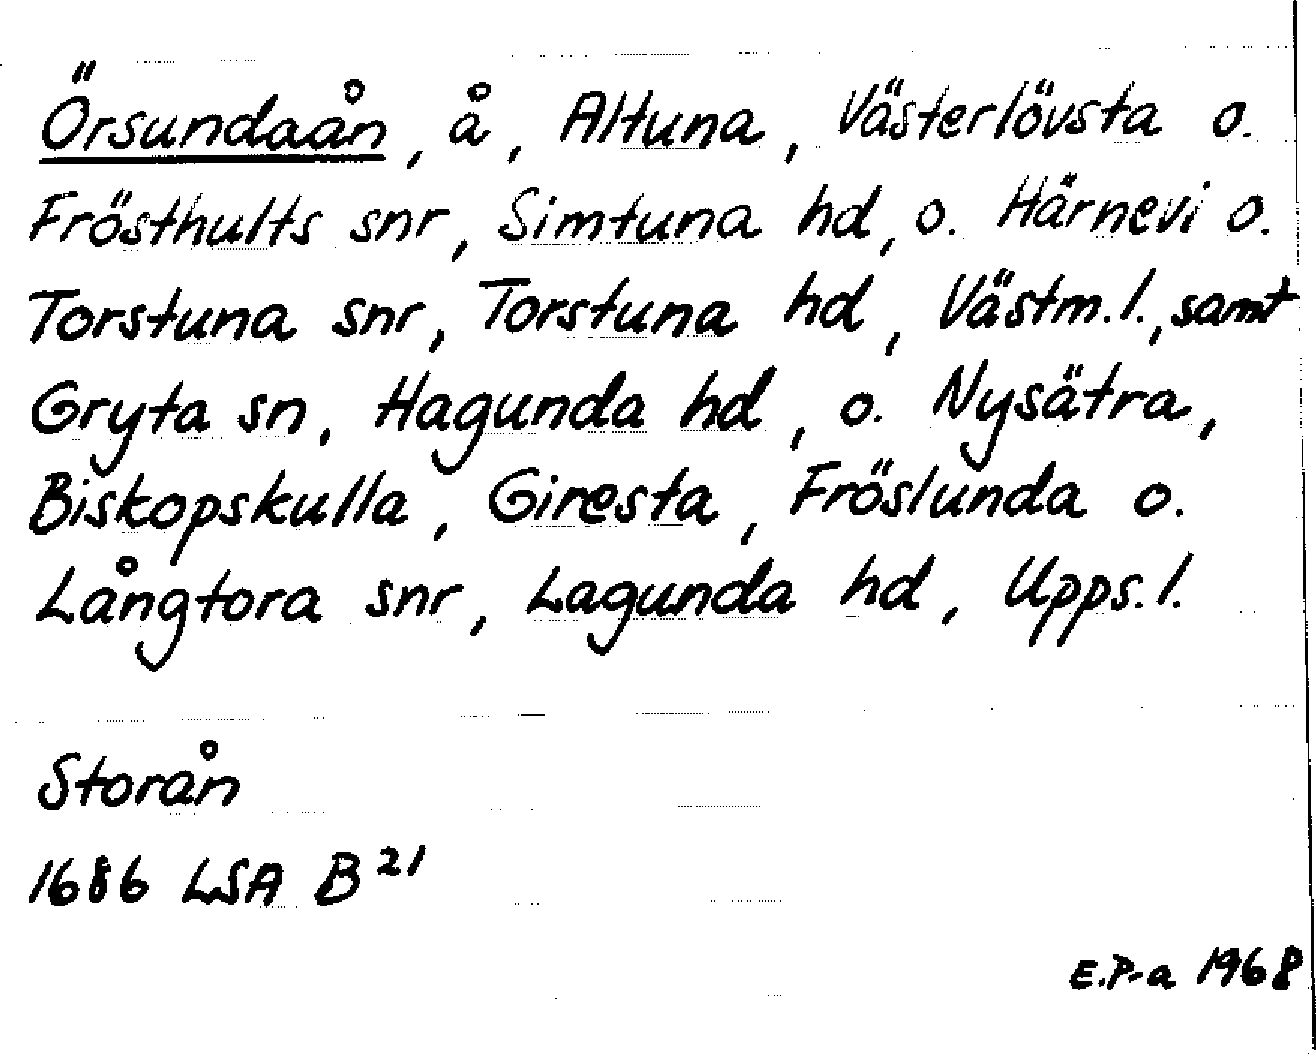 Örsundaån, å, Altuna, Västerlövsta o.
Frösthults snr, Simtuna hd, o. Härnevi o.
Torstuna snr, Torstuna hd, Västm.l., samt
Gryta sn, Hagunda hd, o. Nysätra,
Biskopskulla, Giresta, Fröslunda o.
Långtora snr, Lagunda hd, Upps.l.
Storån
1686 LSA B²¹
E.P-a 1968